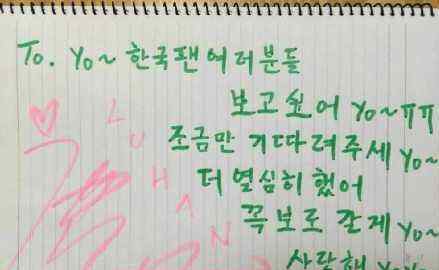 To. Yo~ 한국팬여러분들
보고싶어 Yo~ㅠㅠ
조금만 기다려주세 Yo~
더 열심히 했어
꼭 보로 갈게 Yo~
사랑해 Yo~
LUHAN